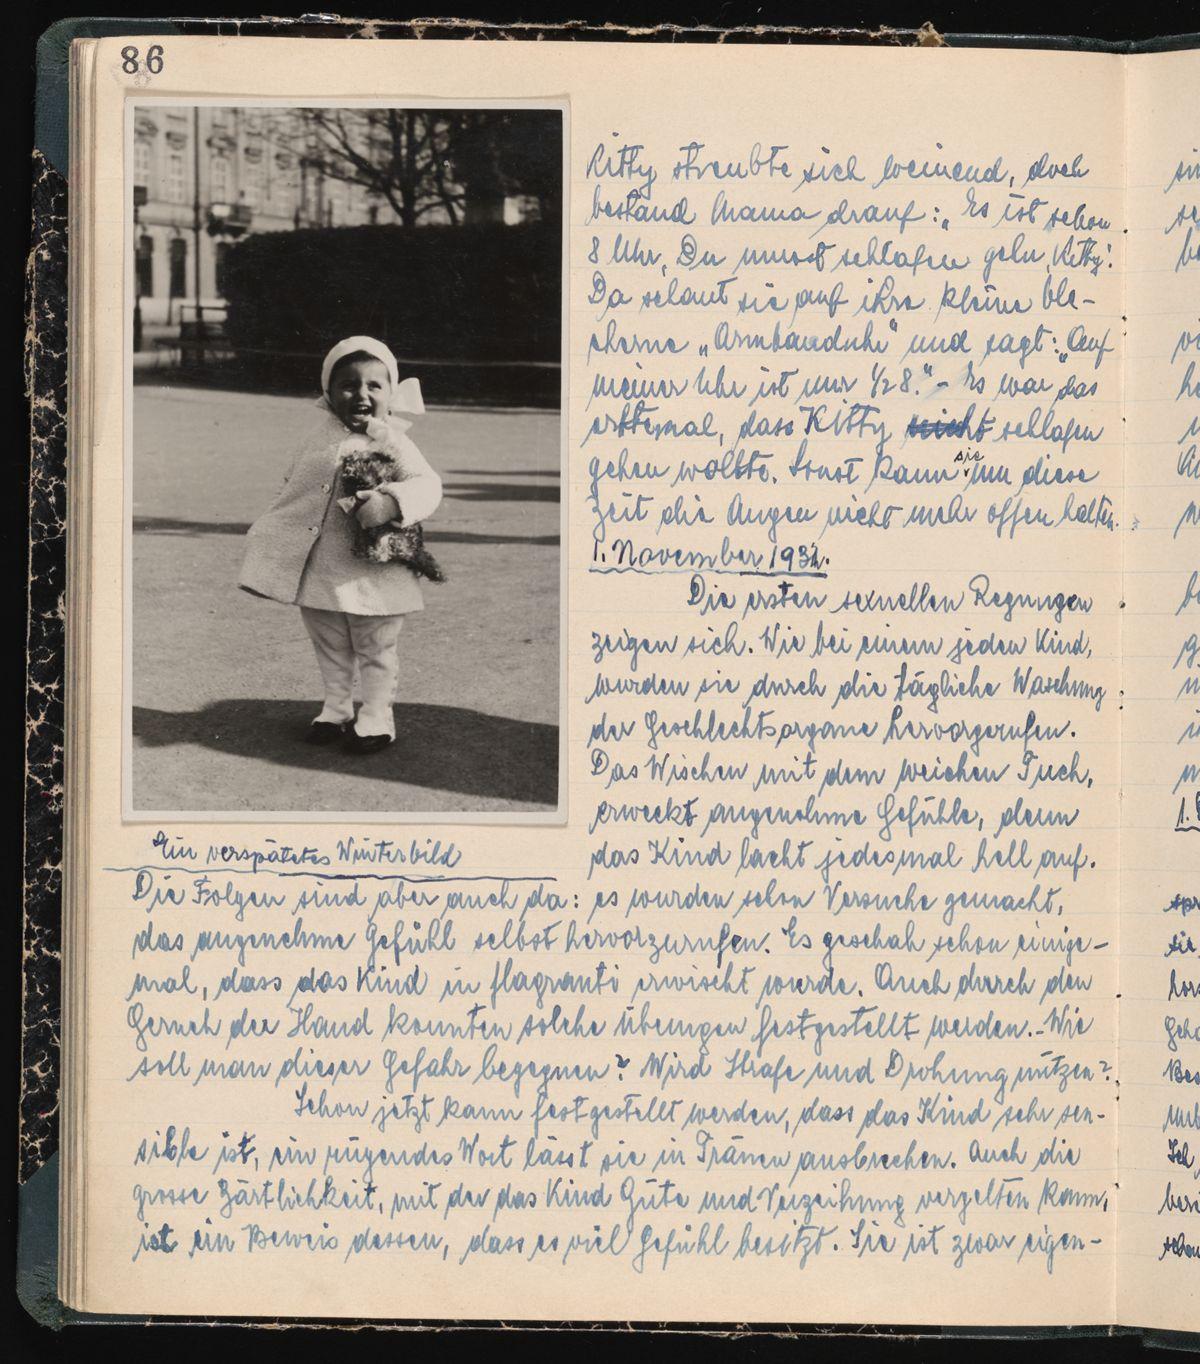 86
Kitty streubte sich weinend, doch
bestand Mama drauf: „Es ist schon
8 Uhr, Du musst schlafen gehn, Kitty!
Da schaut sie auf ihre kleine ble-
cherne „Armbanduhr" und sagt: „Auf
meiner Uhr ist nur ½ 8." - Es war das
erstemal, dass Kitty nicht schlafen
gehen wollte. Sonst kann sie um diese
Zeit die Augen nicht mehr offen halten.
1. November 1932.
Die ersten sexuellen Regungen
zeigen sich. Wie bei einem jeden Kind,
wurden sie durch die tägliche Waschung
der Geschlechtsorgane hervorgerufen.
Das Wischen mit dem weichen Tuch,
erweckt angenehme Gefühle, denn
das Kind lacht jedesmal hell auf.
Ein verspätetes Winterbild
Die Folgen sind aber auch da: es wurden schon Versuche gemacht,
das angenehme Gefühl selbst hervorzurufen. Es geschah schon einige-
mal, dass das Kind in flagranti erwischt wurde. Auch durch den
Geruch der Hand konnten solche Übungen festgestellt werden. - Wie
soll man dieser Gefahr begegnen? Wird Strafe und Drohung nützen?
Schon jetzt kann festgestellt werden, dass das Kind sehr sen-
sible ist, ein rügendes Wort lässt sie in Tränen ausbrechen. Auch die
grosse Zärtlichkeit, mit der das Kind Güte und Verzeihung vergelten kann,
ist ein Beweis dessen, dass es viel Gefühl besitzt. Sie ist zwar eigen-